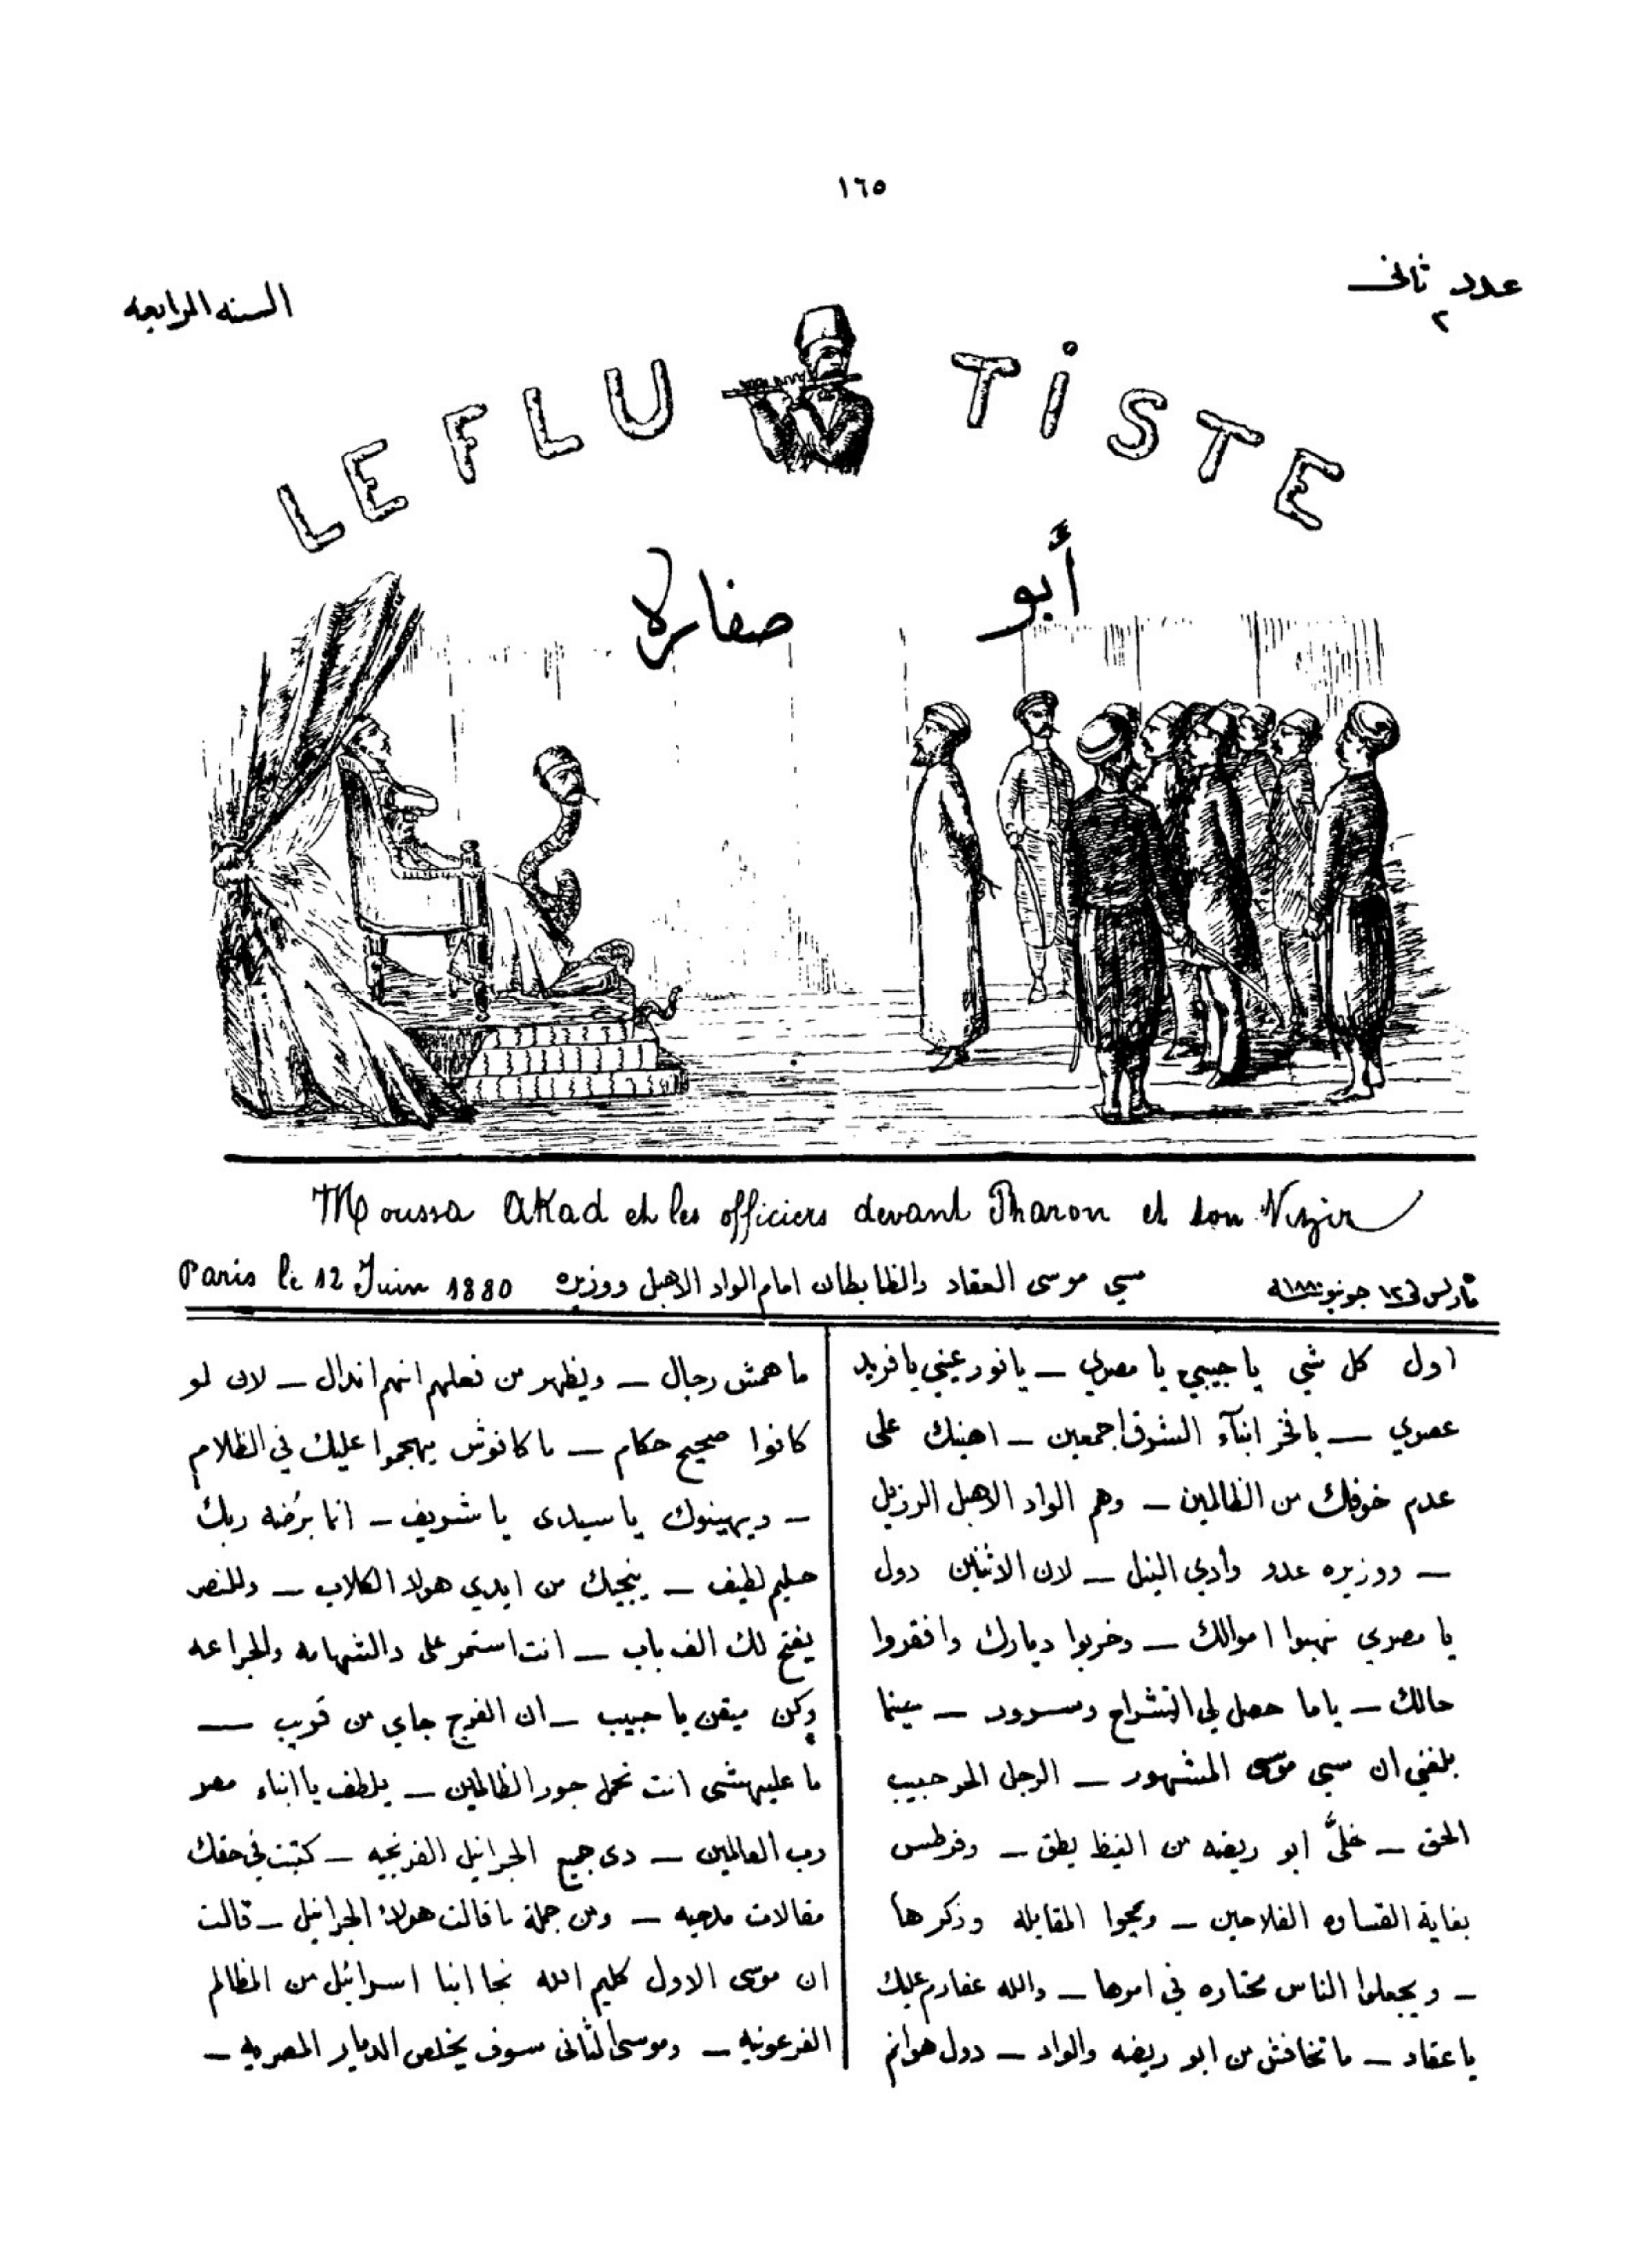 ١٦٥
عدد ثانى
٢
السنه الرابعه
LE FLUTISTE
أبو صفاره
Moussa Akad et les officiers devant Pharon et son Vizir
Paris le 12 Juin 1880
سي موسى العقاد والظابطان امام الواد الاهبل ووزيره
فى ١٢ جونيو ١٨٨٠
اول كل شي يا حبيبي يا مصري — يا نور عيني يا فريد
عصري — يا فخر ابنآء الشرق اجمعين — اهنيك على
عدم خوفك من الظالمين — وهم الواد الاهبل الرزيل
— ووزيره عدو وادي النيل — لان الاثنين دول
يا مصري نهبوا اموالك — وخربوا ديارك وافقروا
حالك — ياما حصل لي انشراح وسرور —
بلغني ان سي موسى المشهور — الرجل الحر حبيب
الحق — خلَّى ابو ريضه من الغيظ يطق —
بغاية القساوه الفلاحين — المقابله وذكرها
— ويجعلوا الناس محتاره في امرها — والله عفارم عليك
يا عقاد — ما تخافش من ابو ريضه والواد — دول
ما همش رجال — ويظهر من فعلهم انهم اندال — لان لو
كانوا صحيح حكام — ما كانوش يهجموا عليك في الظلام
— ويهينوك يا سيدى يا شريف — انما برُضه ربك
حليم لطيف — ينجيك من ايدي هولا الكلاب — وللنصر
يفتح لك الف باب — انت استمر على والشهامه والجراعه
وكن ميقن يا حبيب — ان الفرج جاي من قريب —
ما عليهشى انت تحمل جور الظالمين — يلطف يا ابناء مصر
رب العالمين — دى جميع الجرانيل الفرنجيه — كتبت في حقك
مقالات مدحيه — ومن جملة ما قالت هولاء الجرانيل — قالت
ان موسى الاول كليم الله نجا ابنا اسرائيل من المظالم
الفرعونيه — وموسى الثانى سوف يخلص الديار المصريه —